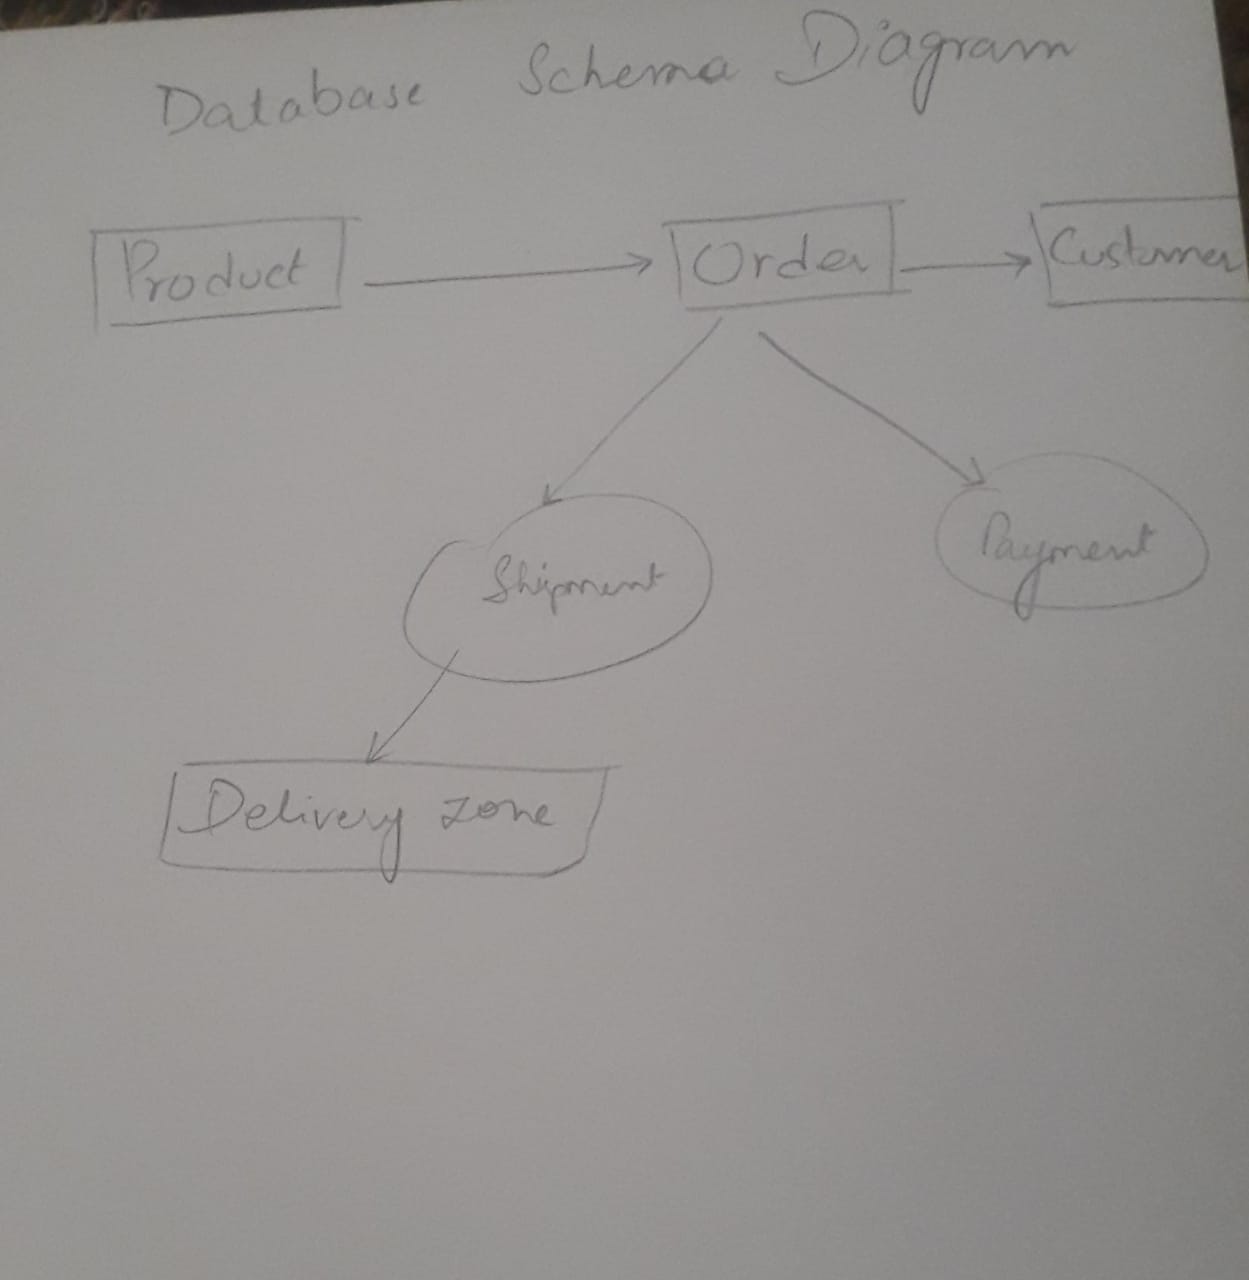 Database Schema Diagram
Product Order Customer
Shipment Payment
Delivery zone